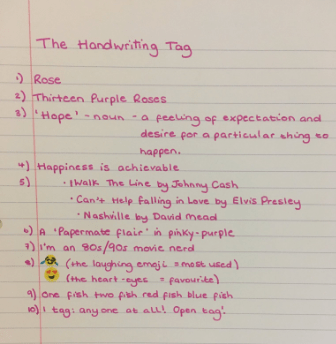 The Handwriting Tag
1) Rose
2) Thirteen Purple Roses
3) 'Hope' - noun - a feeling of expectation and
desire for a particular thing to
happen.
4) Happiness is achievable
5) • I Walk The Line by Johnny Cash
• Can't Help Falling in Love by Elvis Presley
• Nashville by David Mead
6) A 'Papermate flair' in pinky-purple
7) I'm an 80s/90s movie nerd
8) 😂 (the laughing emoji = most used)
😍 (the heart-eyes = favourite)
9) One fish two fish red fish blue fish
10) I tag: anyone at all! Open tag!